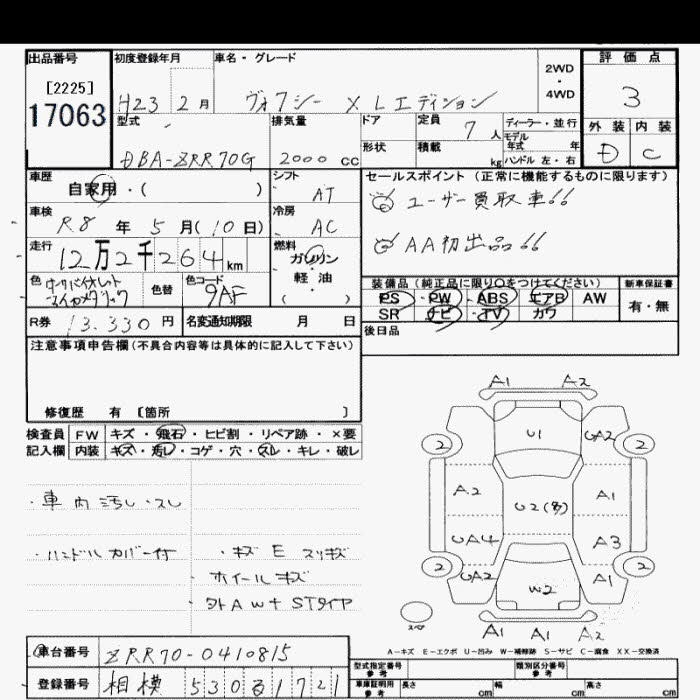 出品番号
[2225]
17063
初度登録年月
H23 2月
車名・グレード
ヴォクシー XLエディション
2WD
・
4WD
評価点
3
型式
DBA-ZRR70G
排気量
2000 cc
ドア
形状
定員 7 人
積載 kg
ディーラー・並行
モデル
年式 年
ハンドル 左・右
外装 内装
D C
車歴
自家用・( )
シフト
AT
車検
R8年 5月(10日)
冷房
AC
走行
12万2千264km
燃料
ガソリン
軽・油
( )
色
色替
色コード
9AF
セールスポイント(正常に機能するものに限ります)
ユーザー買取車!!
AA初出品!!
装備品(純正品に限り○をつけてください)
PS PW ABS エアB AW
SR ナビ TV カワ
新車保証書
有・無
R券 13.330 円
名変通知期限 月 日
後日品
注意事項申告欄(不具合内容等は具体的に記入して下さい)
修復歴 有 [箇所 ]
検査員 FW キズ・飛石・ヒビ割・リペア跡・×要
記入欄 内装 キズ・汚レ・コゲ・穴・スレ・キレ・破レ
・車内汚レ・スレ
・ハンドルカバー付
・キズ E スリキズ
・ホイールキズ
・タトAW+STタイヤ
A1 A2
U1
2 UA2 2
A2 U2(多) A1
UA4 A3
2 UA2 A1 2
W2
A1 A1 A2
スペア
A-キズ E-エクボ U-凹み W-補修跡 S-サビ C-腐食 XX-交換済
車台番号 ZRR70-0410815
登録番号 相模 530 る 1721
型式指定番号
参考
類別区分番号
参考
車庫証明用
参考
長さ cm 幅 cm 高さ cm